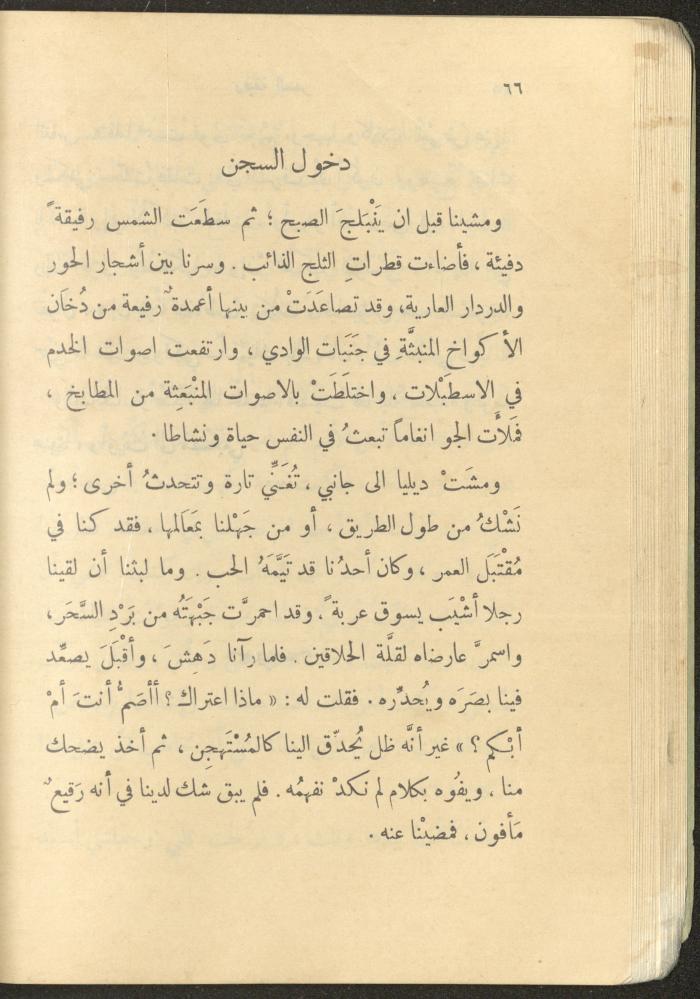 ٦٦
دخول السجن
ومشينا قبل ان يَنْبَلجَ الصبح ؛ ثم سطَعَت الشمس رفيقةً
دفيئة ، فأضاءت قطراتِ الثلج الذائب . وسرنا بين أشجار الحور
والدردار العارية، وقد تصاعَدَتْ من بينها أعمدة ٌ رفيعة من دُخَان
الأكواخ المنبثَّةِ في جَنَبات الوادي ، وارتفعت اصوات الخدم
في الاسطَبْلات ، واختلَطَتْ بالاصوات المنْبَعِثة من المطابخ ،
فملأَت الجو انغاماً تبعثُ في النفس حياة ونشاطا .
ومشَتْ ديليا الى جانبي ، تُغَنِّي تارة وتتحدثُ أخرى ؛ ولم
نَشْكُ من طول الطريق ، أو من جَهْلنا بمَعَالمها ، فقد كنا في
مُقْتبَل العمر ، وكان أحدُنا قد تَيَّمَهُ الحب . وما لبثنا أن لقينا
رجلا أشْيَب يسوق عربةً ، وقد احمرَّت جَبْهَتُه من بَرْدِ السَّحَر ،
واسمرَّ عارضاه لقلَّة الحلاقين . فلما رآنا دَهِشَ ، وأقْبَلَ يصعِّد
فينا بصَرَه ويُحدِّره . فقلت له : « ماذا اعتراك ؟ أأصَمُّ أنتَ أمْ
أبْكم ؟ » غير أنَّه ظل يُحدّق الينا كالمُسْتَهجِن ، ثم أخذ يضحك
منا ، ويفُوه بكلام لم نكدْ نفهمُه . فلم يبق شك لدينا في أنه رَقيع ٌ
مَأفون ، فمضيْنا عنه .